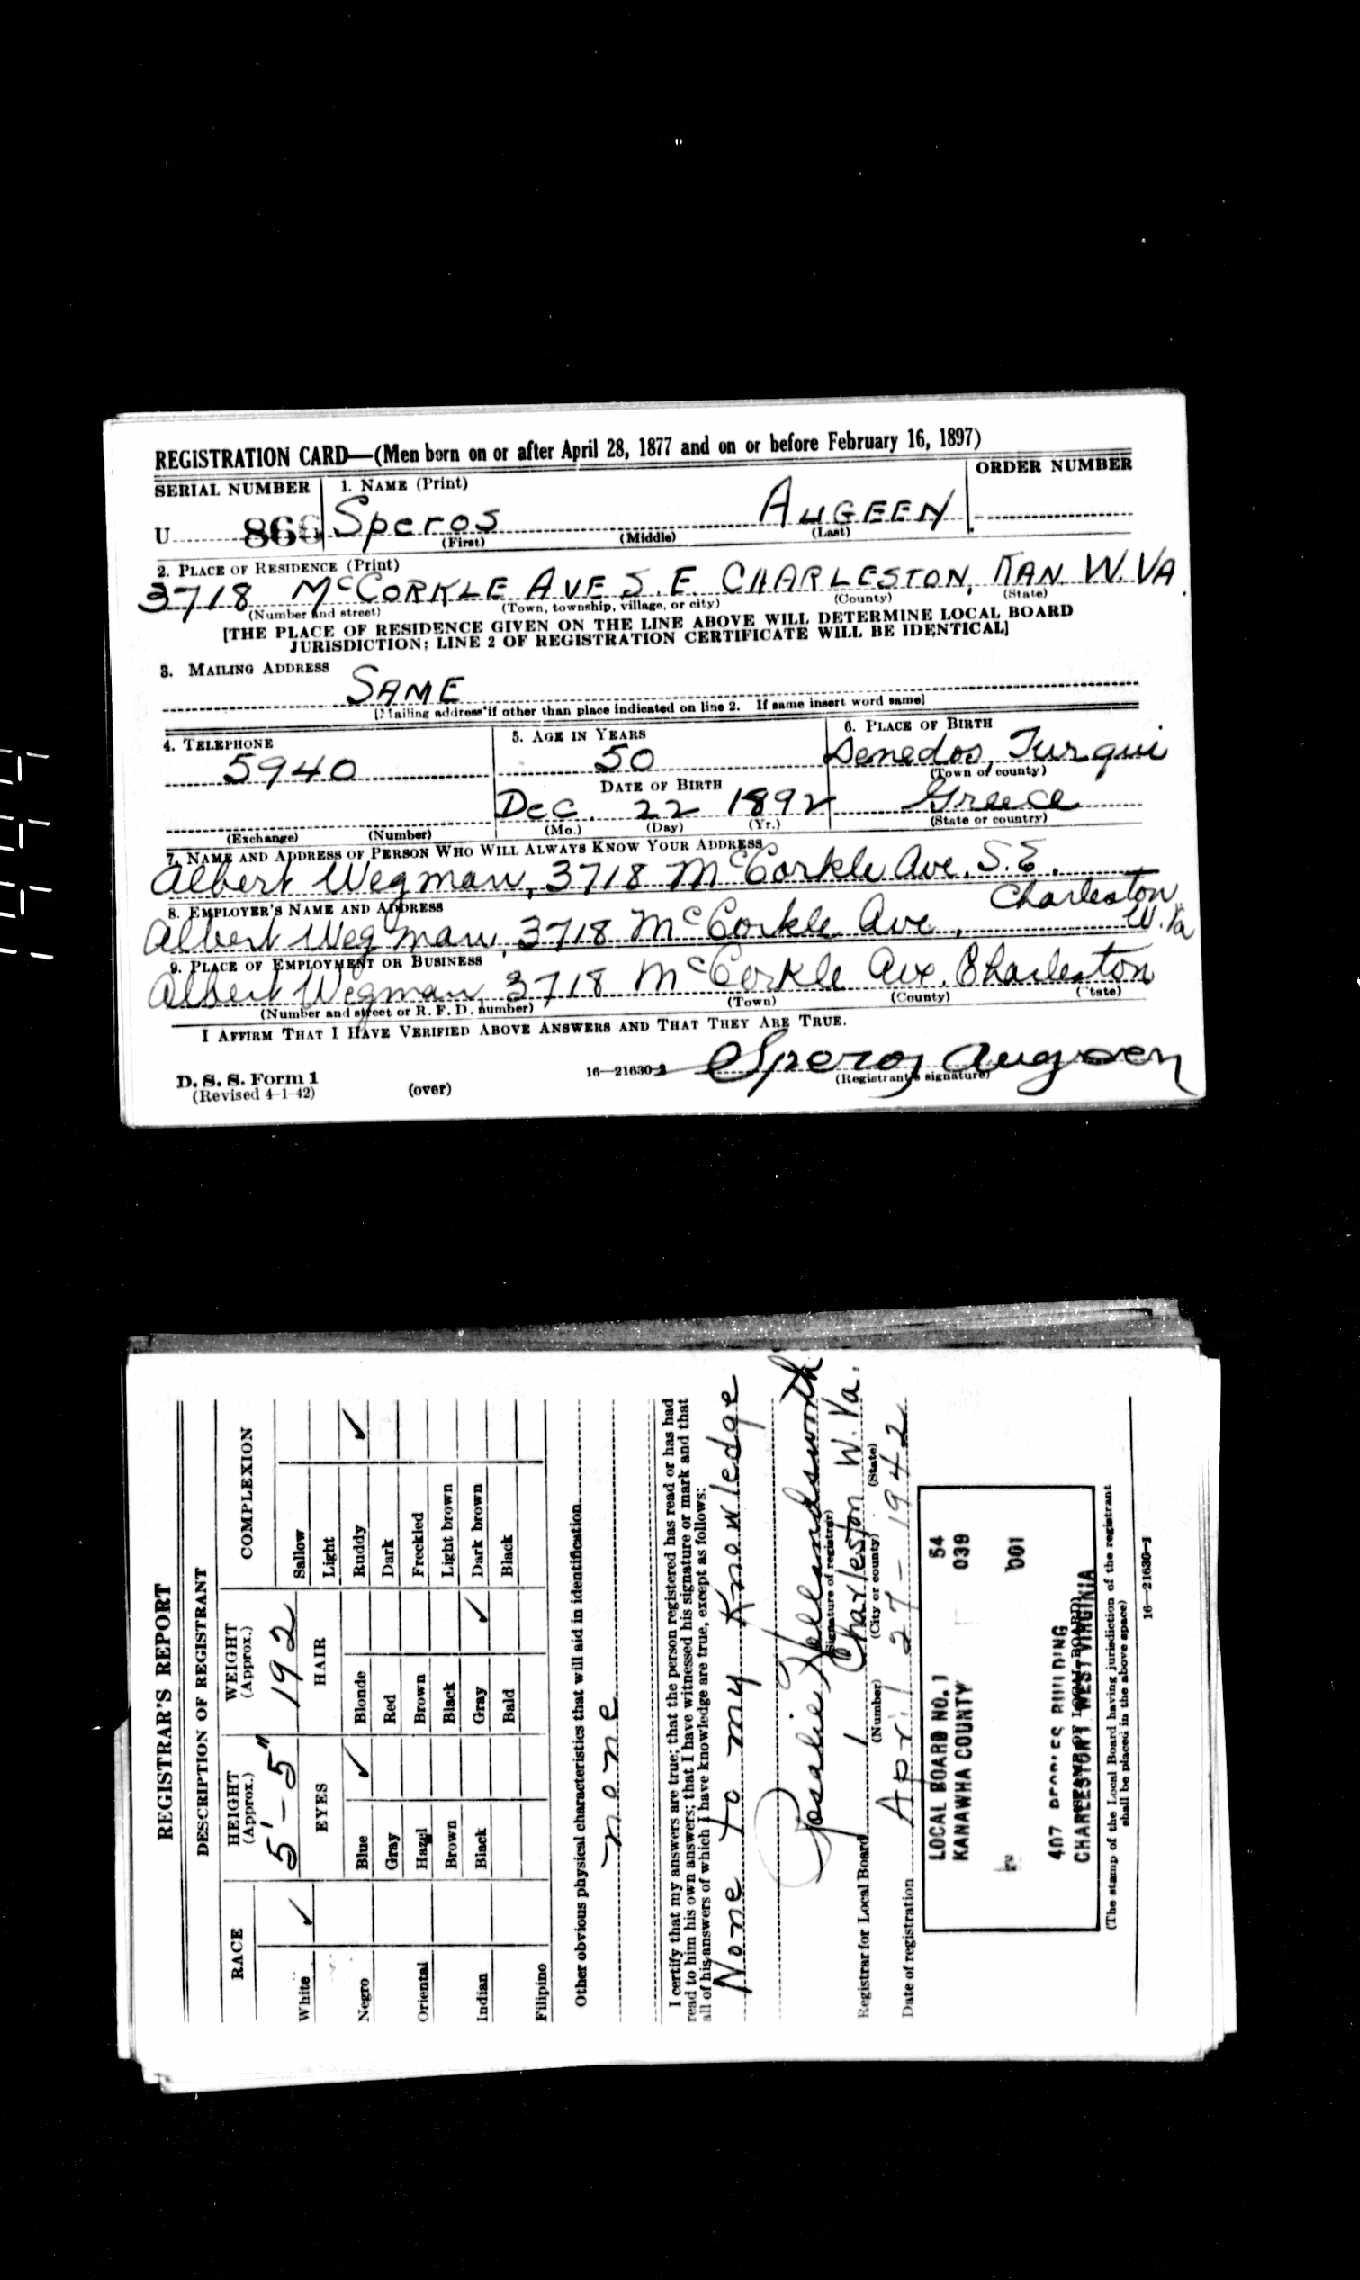 REGISTRATION CARD—(Men born on or after April 28, 1877 and on or before February 16, 1897)
SERIAL NUMBER 1. NAME (Print) ORDER NUMBER
U 866 Speros AUGEEN
(First) (Middle) (Last)
2. PLACE OF RESIDENCE (Print)
3718 McCORKLE AVE S.E. CHARLESTON, KAN W.VA
(Number and street) (Town, township, village, or city) (County) (State)
[THE PLACE OF RESIDENCE GIVEN ON THE LINE ABOVE WILL DETERMINE LOCAL BOARD
JURISDICTION; LINE 2 OF REGISTRATION CERTIFICATE WILL BE IDENTICAL]
3. MAILING ADDRESS
SAME
[Mailing address if other than place indicated on line 2. If same insert word same]
4. TELEPHONE 5. AGE IN YEARS 6. PLACE OF BIRTH
5940 50 Denedos, Turqui
DATE OF BIRTH (Town or county)
Dec. 22 1892 Greece
(Exchange) (Number) (Mo.) (Day) (Yr.) (State or country)
7. NAME AND ADDRESS OF PERSON WHO WILL ALWAYS KNOW YOUR ADDRESS
Albert Wegman, 3718 McCorkle Ave. S.E.
8. EMPLOYER'S NAME AND ADDRESS Charleston
Albert Wegman, 3718 McCorkle Ave., W.Va
9. PLACE OF EMPLOYMENT OR BUSINESS
Albert Wegman, 3718 McCorkle Ave. Charleston
(Number and street or R. F. D. number) (Town) (County) (State)
I AFFIRM THAT I HAVE VERIFIED ABOVE ANSWERS AND THAT THEY ARE TRUE.
D. S. S. Form 1 16—21630-2 Speros Augeen
(Revised 4-1-42) (over) (Registrant's signature)
REGISTRAR'S REPORT
DESCRIPTION OF REGISTRANT
RACE HEIGHT (Approx.) WEIGHT (Approx.) COMPLEXION
5'-5" 192
White ✓ EYES HAIR Sallow
Light
Negro Blue ✓ Blonde Ruddy ✓
Gray Red Dark
Oriental Hazel Brown Freckled
Brown Black Light brown
Indian Black Gray ✓ Dark brown
Bald Black
Filipino
Other obvious physical characteristics that will aid in identification
none
I certify that my answers are true; that the person registered has read or has had
read to him his own answers; that I have witnessed his signature or mark and that
all of his answers of which I have knowledge are true, except as follows:
None to my Knowledge
Rosalie Hollandsworth
(Signature of registrar)
Registrar for Local Board 1 Charleston W. Va.
(Number) (City or county) (State)
Date of registration April 27-1942
LOCAL BOARD NO. 1 54
KANAWHA COUNTY 039
001
407 PEOPLES BUILDING
CHARLESTON, WEST VIRGINIA
(The stamp of the Local Board having jurisdiction of the registrant
shall be placed in the above space)
16—21630-2